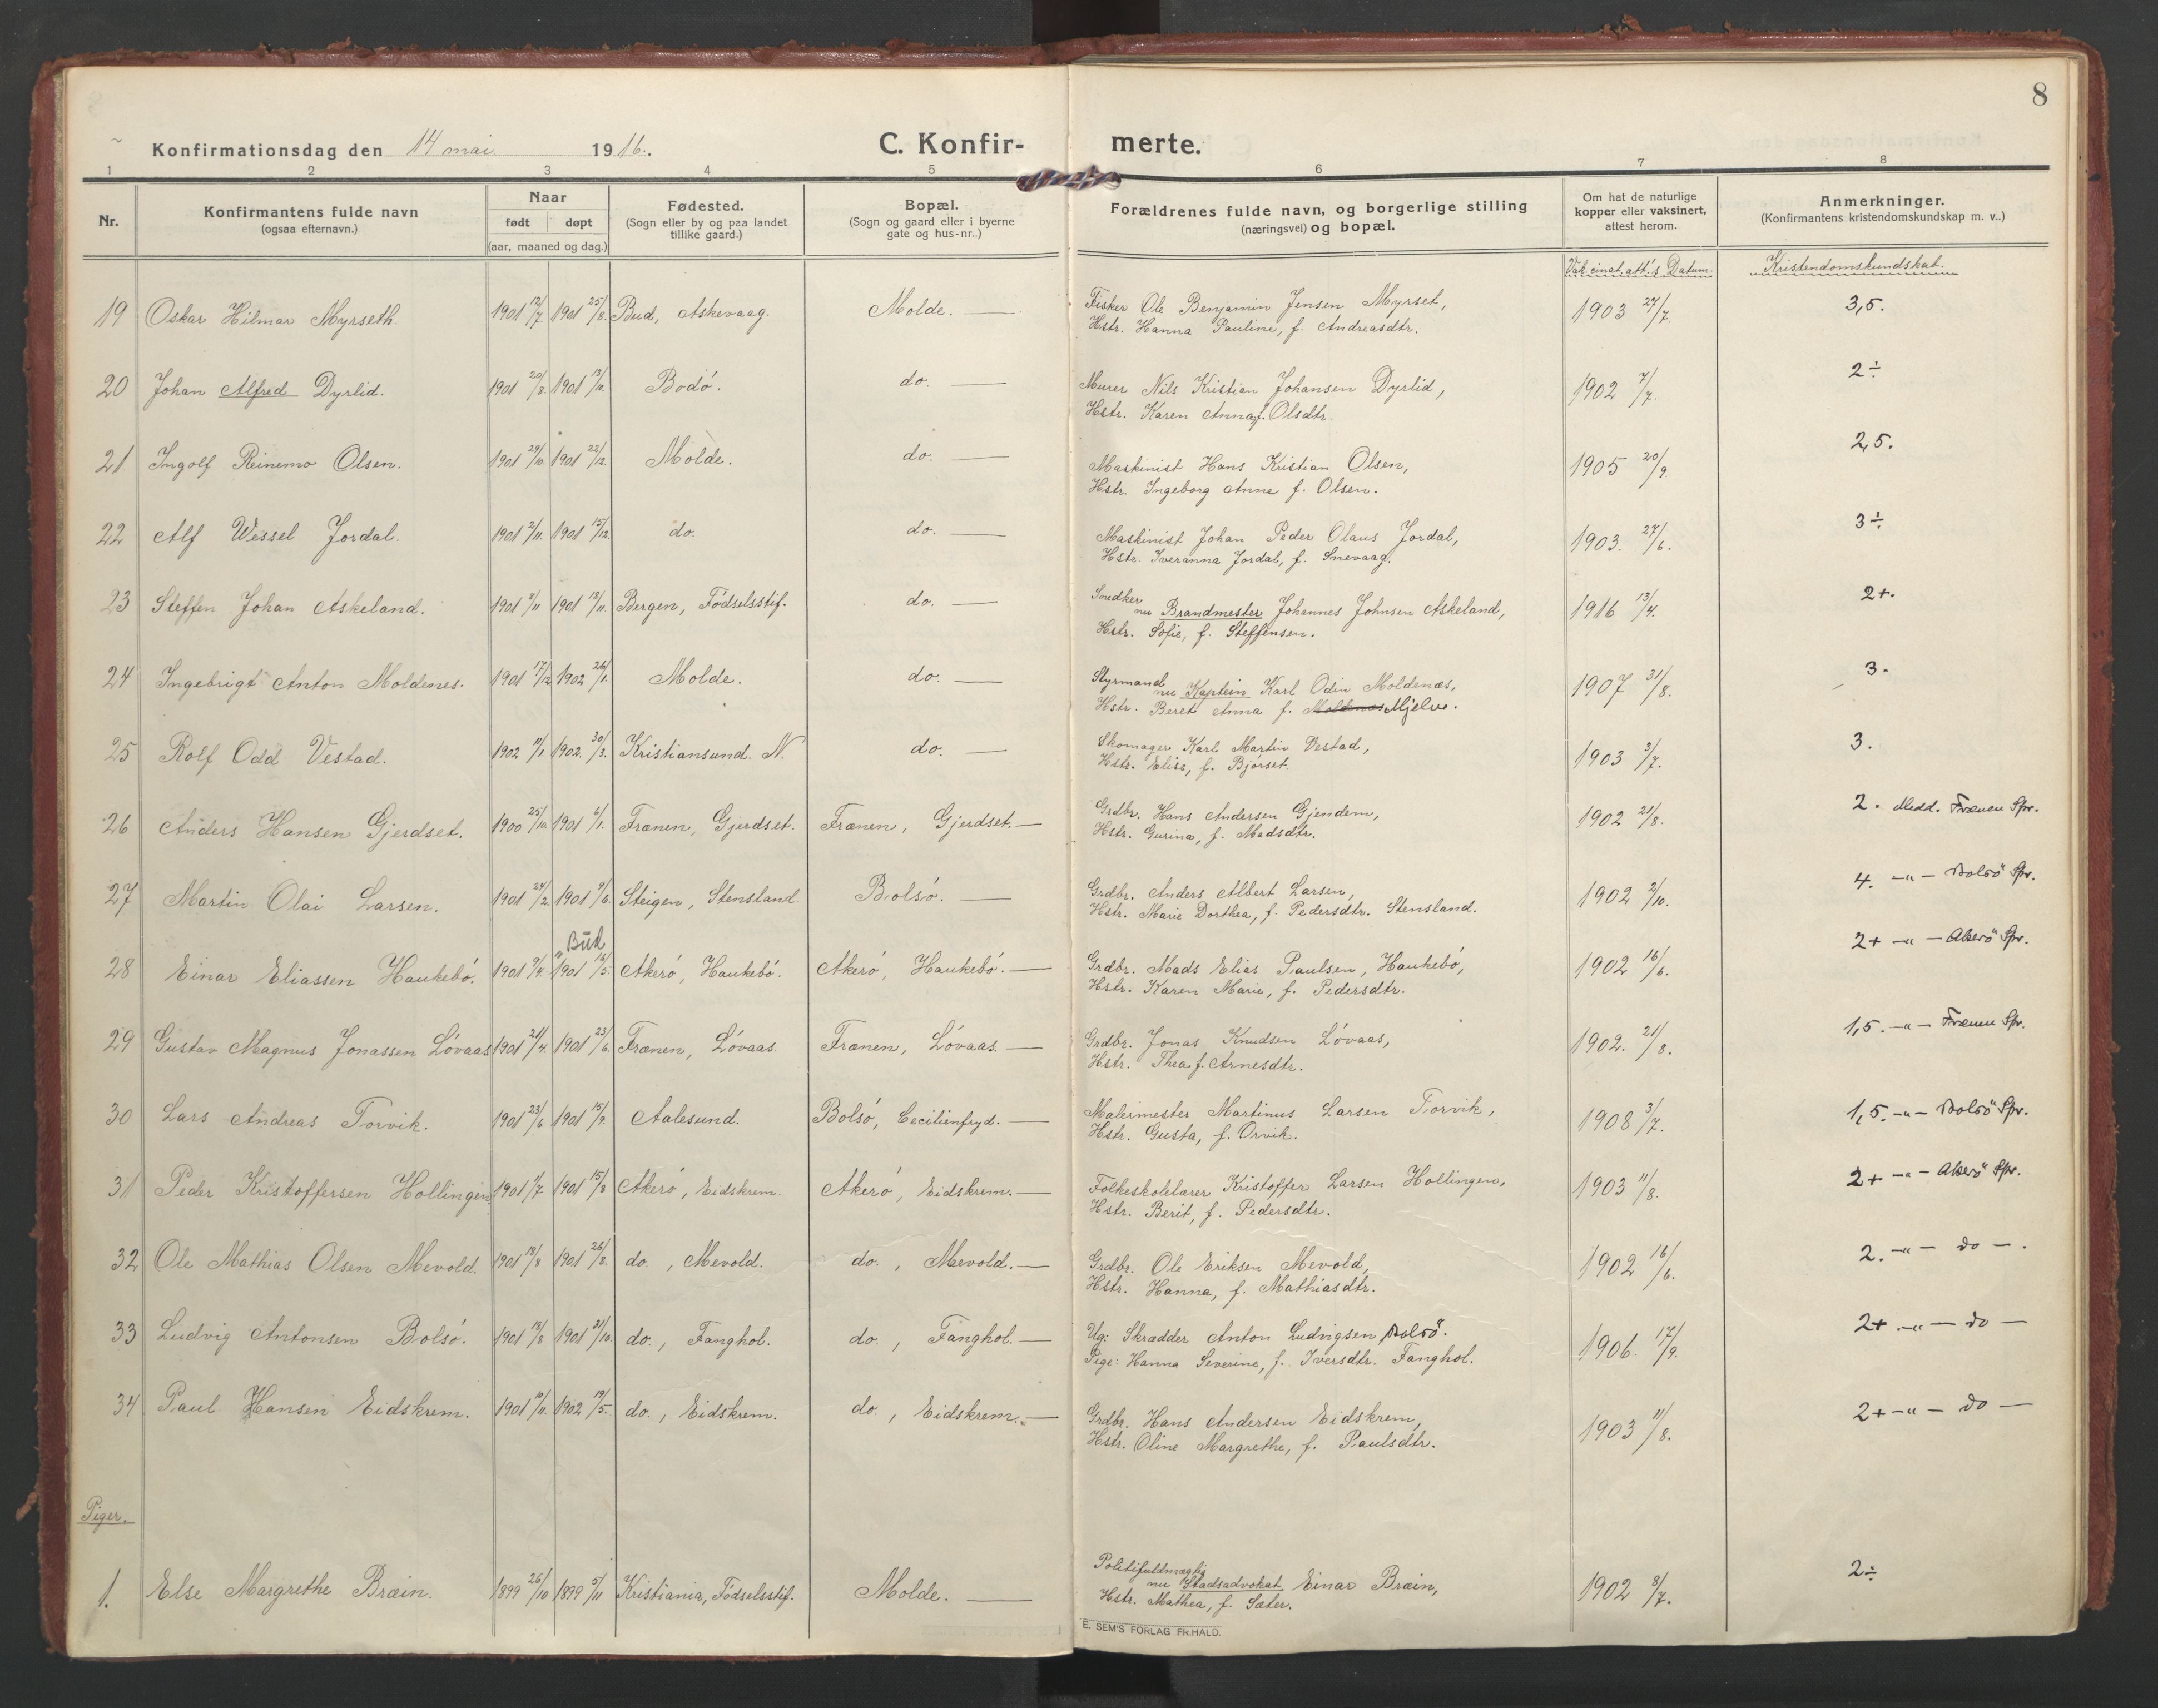 8
Konfirmationsdag den 14 mai 1916.
C. Konfir- merte.
1 2 3 4 5 6 7 8
Nr.
Konfirmantens fulde navn
(ogsaa efternavn.)
Naar
født døpt
(aar, maaned og dag.)
Fødested.
(Sogn eller by og paa landet
tillike gaard.)
Bopæl.
(Sogn og gaard eller i byerne
gate og hus-nr..)
Forældrenes fulde navn, og borgerlige stilling
(næringsvei) og bopæl.
Om hat de naturlige
kopper eller vaksinert,
attest herom.
Anmerkninger.
(Konfirmantens kristendomskundskap m. v..)
Vakcinat. att's Datum. Kristendomskundskab.
19 Oskar Hilmar Myrseth. 1901 12/7 1901 25/8. Bud, Askevaag. Molde. — Fisker Ole Benjamin Jensen Myrset, 1903 27/7. 3,5.
Hstr. Hanna Pauline, f. Andreasdtr.
20 Johan Alfred Dyrlid. 1901 20/8. 1901 Bodó. do. — Murer Nils Kristian Johansen Dyrlid, 1902 7/7. 2÷
Hstr. Karen Anna, f. Olsdtr.
21 Ingolf Reinemo Olsen. 1901 29/10. 1901 22/12. Molde. do. — Maskinist Hans Kristian Olsen, 1905 20/9. 2,5.
Hstr. Ingeborg Anne f. Olsen.
22 Alf Wessel Jordal. 1901 2/11. 1901 15/12. do. do. — Maskinist Johan Peder Olaus Jordal, 1903. 27/6. 3÷
Hstr. Iveranna Jordal, f. Snevaag.
23 Steffen Johan Askeland. 1901 1901 Bergen, Fódselsstif. do. — Smedker
nu Brandmester Johannes Johnsen Askeland, 1916 13/4. 2+.
Hstr. Sofie, f. Steffensen.
24 Ingebrigt Anton Moldenes. 1901 17/12 1902 26/1. Molde. do. — Styrmand
nu Kaptein Karl Odin Moldenæs, 1907 31/8. 3.
Hstr. Beret Anna f. Moldenæs Mjelve.
25 Rolf Odd Vestad. 1902 11/1. 1902. 30/3. Kristiansund. N. do. — Skomager Karl Martin Vestad, 1903 3/7. 3.
Hstr. Elise, f. Bjórset.
26 Anders Hansen Gjerdset. 1900 25/10. 1901 6/1. Frænen, Gjerdset. Frænen, Gjerdset. — Grdbr. Hans Andersen Gjendem, 1902 21/8. 2. Medd. Frænen Spr.
Hstr. Gurina, f. Madsdtr.
27 Martin Olai Larsen. 1901 24/2. 1901 9/6. Steigen, Stensland. Bolsó. — Grdbr. Anders Albert Larsen, 1902 2/10. 4. -"- Bolsö Spr.
Hstr. Marie Dorthea, f. Pedersdtr. Stensland.
Bud
28 Einar Eliassen Haukebó. 1901 9/4. 1901 16/5. Akeró, Haukebó. Akeró, Haukebó. — Grdbr. Mads Elias Paulsen, Haukebó, 1902 16/6. 2+ -"- Akerö Spr.
Hstr. Karen Marie, f. Pedersdtr.
29 Gustav Magnus Jonassen Lóvaas 1901 21/4. 1901 23/6. Frænen, Lóvaas. Frænen, Lóvaas. — Grdbr. Jonas Knudsen Lóvaas, 1902. 21/8. 1,5. -"- Frænen Spr.
Hstr. Thea f. Arnesdtr.
30 Lars Andreas Torvik. 1901 23/6 1901 15/9. Aalesund. Bolsó, Cecilienfryd. — Malermester Martinus Larsen Torvik, 1908 3/7. 1,5. -"- Bolsö Spr.
Hstr. Gusta, f. Orvik.
31 Peder Kristoffersen Hollingen 1901 1/7 1901 15/8 Akeró, Eidskrem. Akeró, Eidskrem. — Folkeskolelærer Kristoffer Larsen Hollingen, 1903 11/8. 2+ -"- Akerö Spr.
Hstr. Berit, f. Pedersdtr.
32 Ole Mathias Olsen Mevold. 1901 1901 26/8. do., Mevold. do., Mevold. — Grdbr. Ole Eriksen Mevold, 1902 16/6. 2. -"- do -.
Hstr. Hanna, f. Mathiasdtr.
33 Ludvig Antonsen Bolsó. 1901 1901 31/10. do., Fanghol. do., Fanghol. — Ug: Skrædder Anton Ludvigsen Bolsö. 1906. 17/9. 2+ -"- do -
Pige: Hanna Severine, f. Iversdtr. Fanghol.
34 Paul Hansen Eidskrem. 1901 10/11. 1902 19/5. do., Eidskrem. do., Eidskrem. — Grdbr. Hans Andersen Eidskrem, 1903 11/8. 2+ -"- do -
Hstr. Oline Margrethe, f. Paulsdtr.
Piger.
1. Else Margrethe Bræin. 1899 26/10 1899 5/11 Kristiania, Fódselsstif. Molde. — Politifuldmægtig
nu Stadsadvokat Einar Bræin, 1902 8/7. 2÷
Hstr. Mathea, f. Sæter.
E. SEM'S FORLAG FR.HALD.